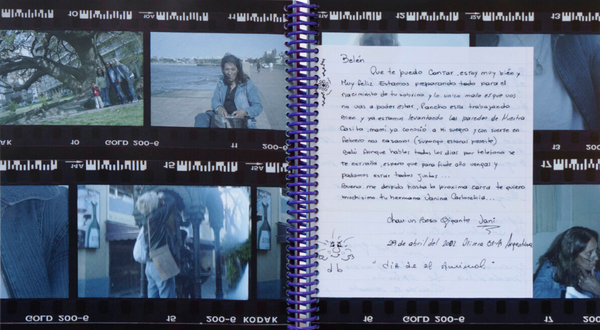 10
10A
11
12
12A
13
10 GOLD 200-6
11 200-6
15
15A
16
17
GOLD 200-6
15 200-6 KODAK
16 GOLD 200-6
17
Belén
Que te puedo contar, estoy muy bien y
muy feliz. Estamos preparando todo para el
nacimiento de tu sobrina y lo unico malo el que vos
no vas a poder estar, Pancho esta trabajando
bien y ya estamos levantando las paredes de nuestra
casita, mami ya conoció a mi suegra y con suerte en
febrero nos casamos (supongo estaras presente)
Gabi aunque hables todos los dias por telefono se
te extraña, espero que para fin de año vengas y
podamos estar todas juntas...
Bueno me despido hasta la proxima carta te quiero
muchisimo tu hermana Janina
Chau un beso Gigante Jani.
29 de abril del 2002 Argentina
"dia de el animal"
d b